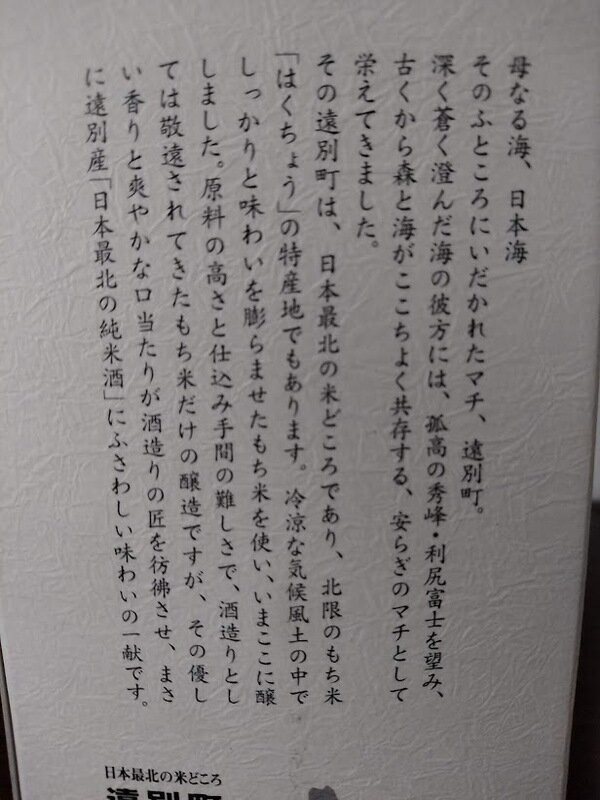 母なる海、日本海
そのふところにいだかれたマチ、遠別町。
深く蒼く澄んだ海の彼方には、孤高の秀峰・利尻富士を望み、
古くから森と海がここちよく共存する、安らぎのマチとして
栄えてきました。
その遠別町は、日本最北の米どころであり、北限のもち米
「はくちょう」の特産地でもあります。冷涼な気候風土の中で
しっかりと味わいを膨らませたもち米を使い、いまここに醸
しました。原料の高さと仕込み手間の難しさで、酒造りとし
ては敬遠されてきたもち米だけの醸造ですが、その優し
い香りと爽やかな口当たりが酒造りの匠を彷彿させ、まさ
に遠別産「日本最北の純米酒」にふさわしい味わいの一献です。
日本最北の米どころ
遠別町